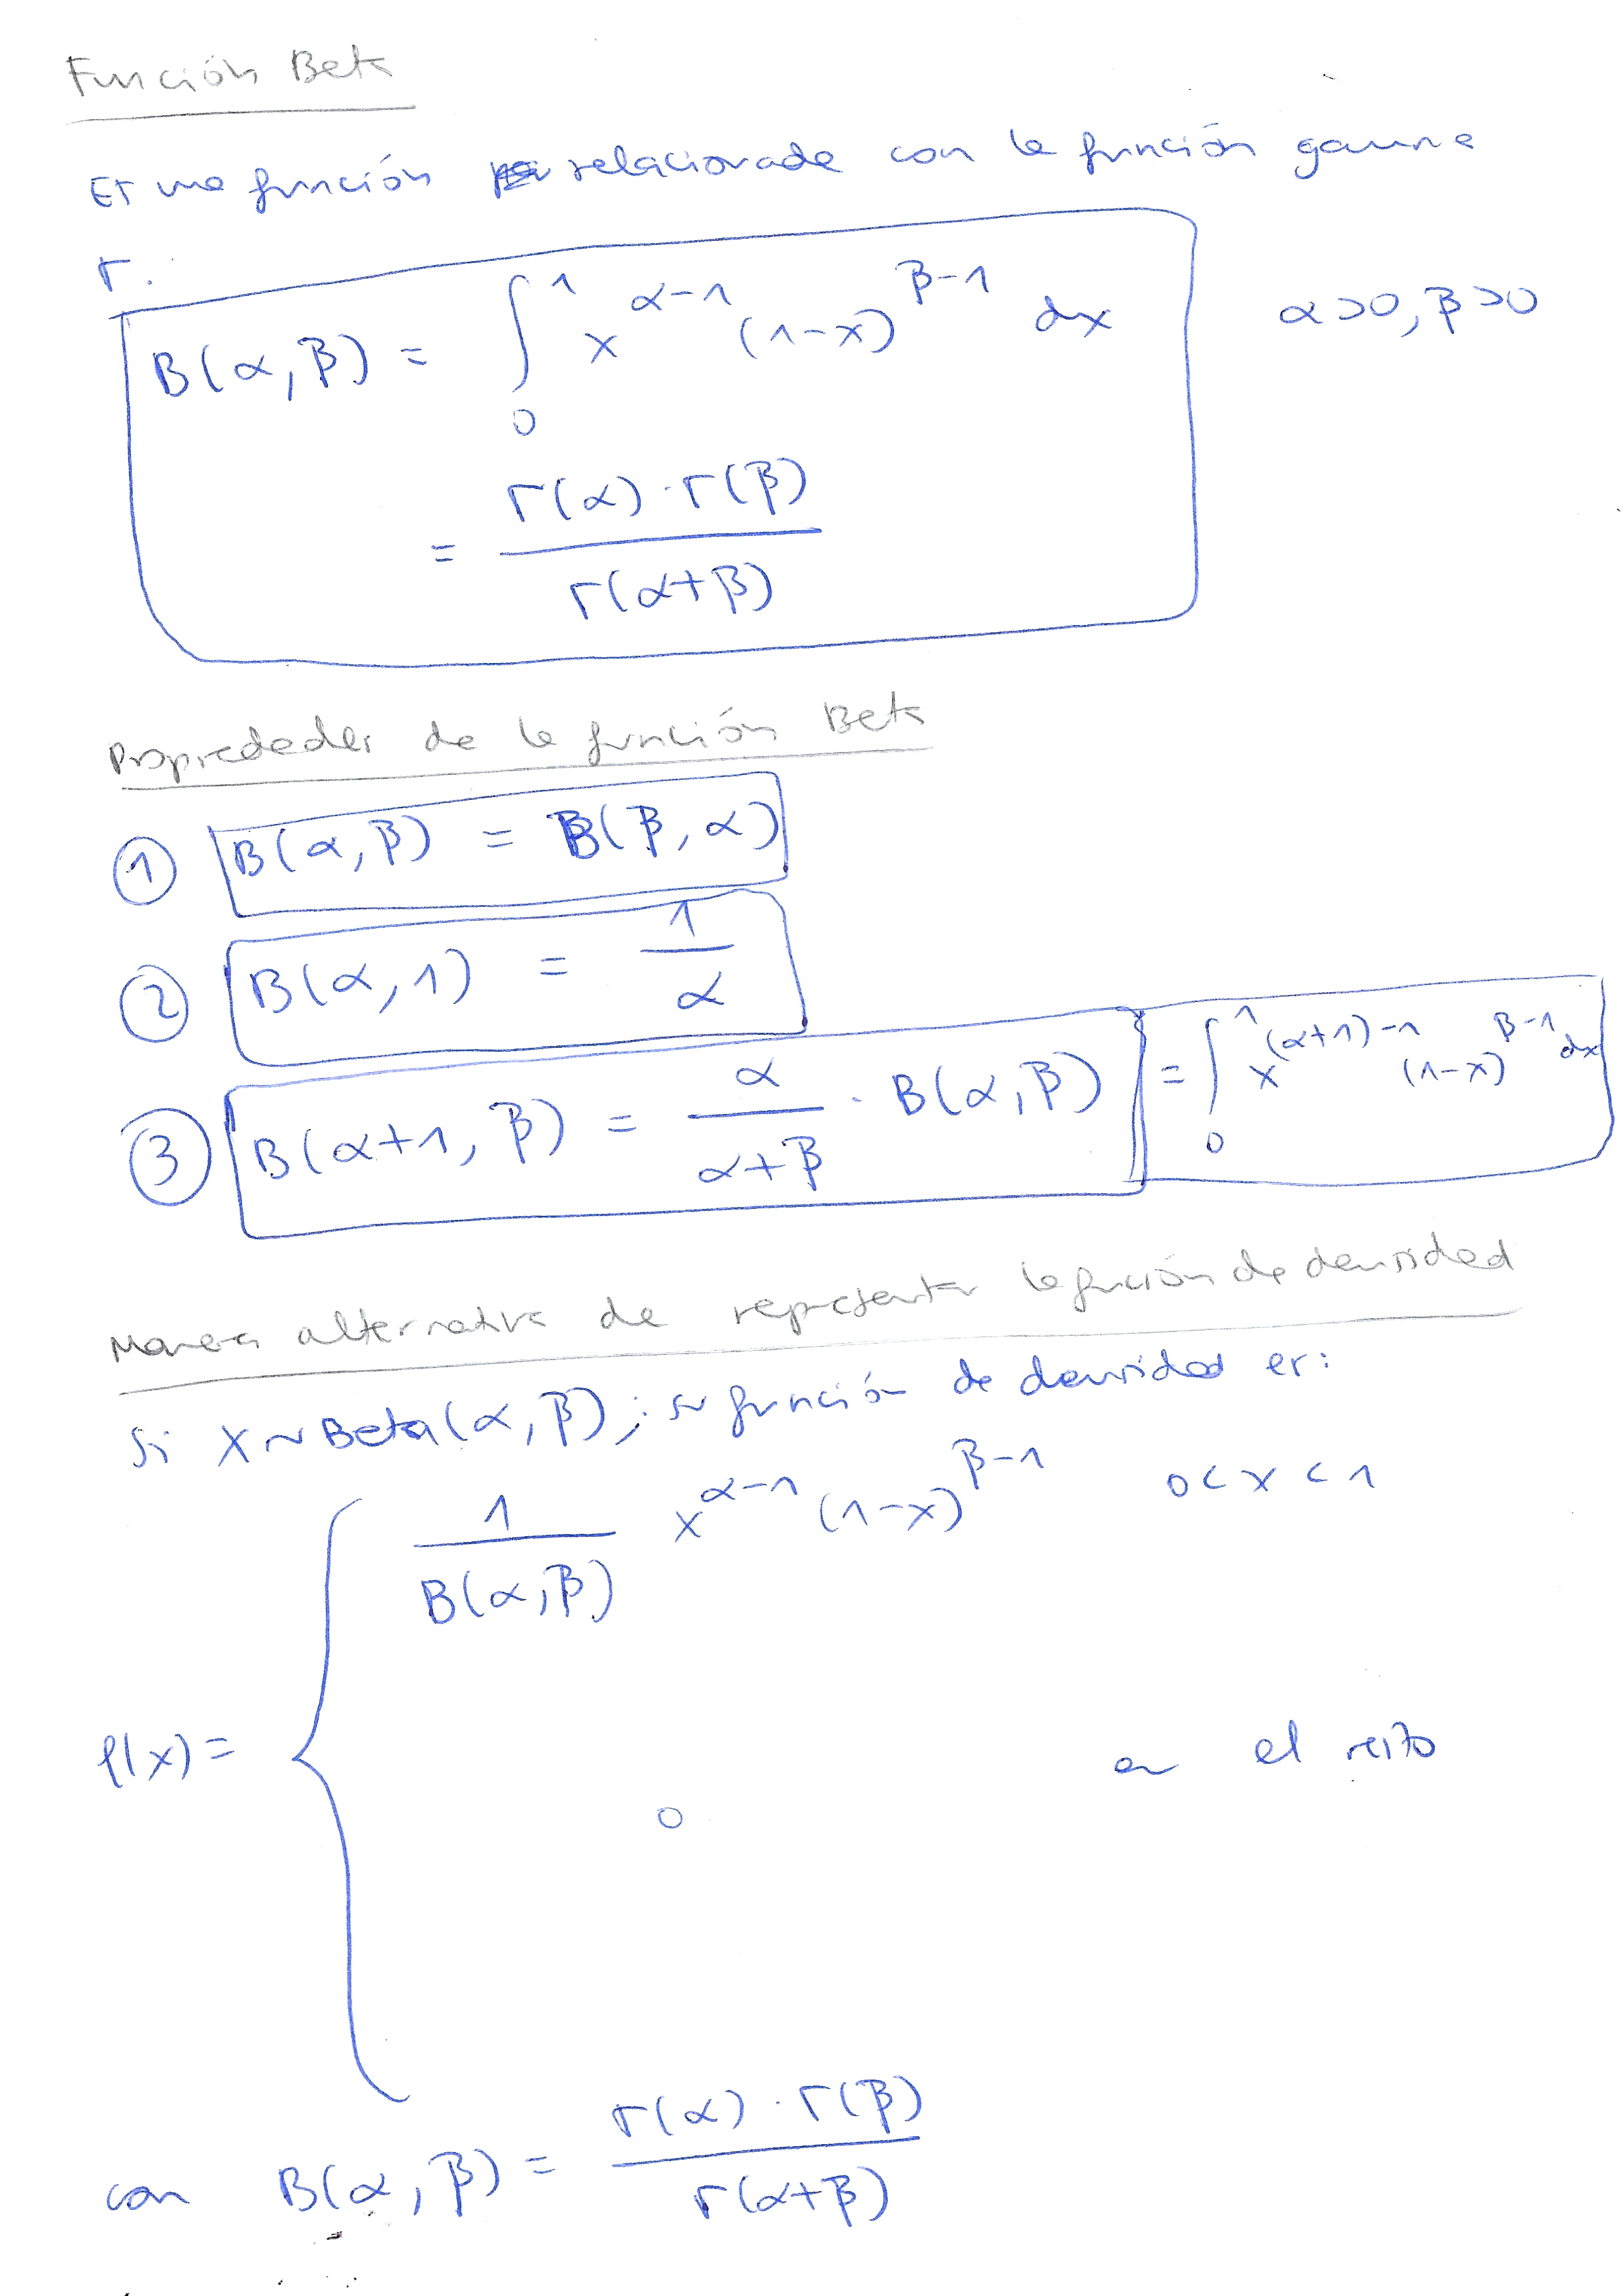 Función Beta
Es una función relacionada con la función gamma
Γ.
B(α,β) = ∫₀¹ x^(α-1) (1-x)^(β-1) dx    α>0, β>0
= Γ(α)·Γ(β) / Γ(α+β)
Propiedades de la función Beta
① B(α,β) = B(β,α)
② B(α,1) = 1/α
③ B(α+1,β) = α/(α+β) · B(α,β) = ∫₀¹ x^((α+1)-1) (1-x)^(β-1) dx
Manera alternativa de representar la función de densidad
Si X~Beta(α,β); su función de densidad es:
1/B(α,β) x^(α-1) (1-x)^(β-1)    0<x<1
f(x) = {
0    en el resto
con B(α,β) = Γ(α)·Γ(β) / Γ(α+β)